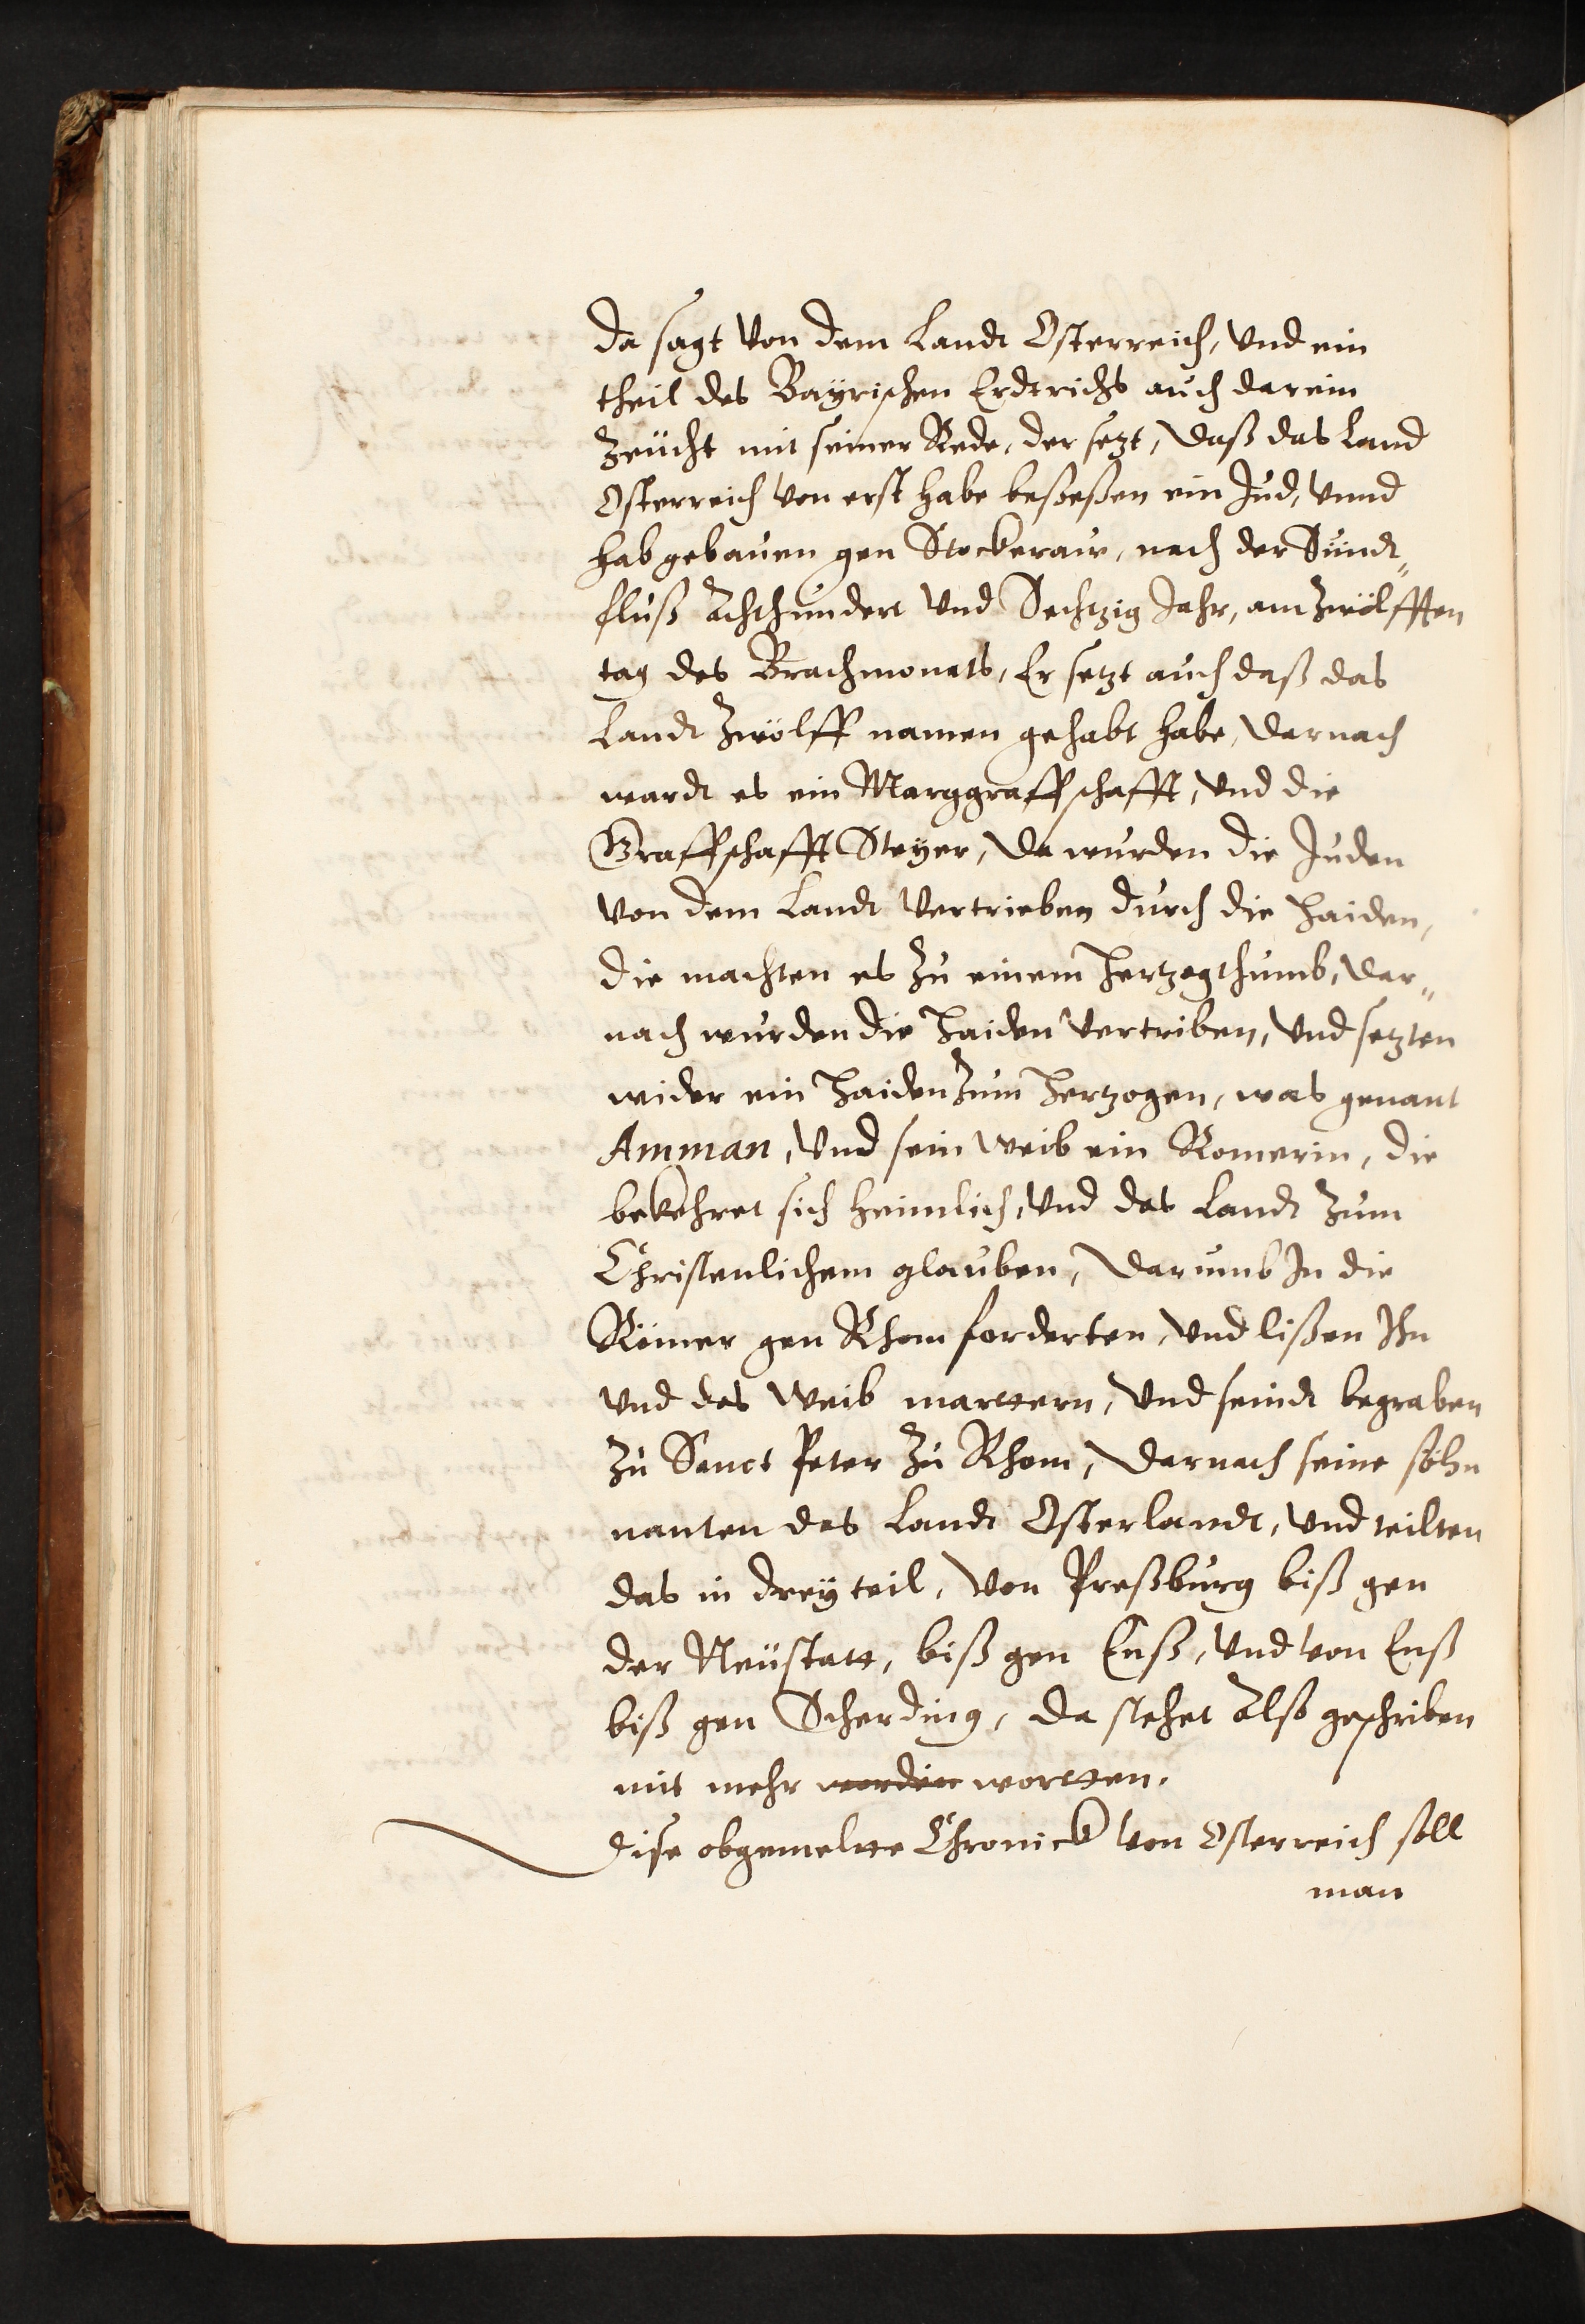 da sagt von dem Landt Osterreich, vnd ein
theil des Bayrischen Erdtrichs auch darein
Zeücht mit seiner Rede, der setzt, daß das Land
Osterreich von erst habe beßeßen ein Jud, vnnd
hab gebauen gen Stockerau, nach der Sündt„
fluß Achthundert vnd Sechtzig Jahr, am Zwölfften
tag des Brachmonats, Er setzt auch daß das
Landt Zwölff namen gehabt habe, darnach
wardt es ein Marggraffschafft, vnd die
Graffschafft Steyer, da wurden die Juden
von dem Landt vertrieben durch die Haiden,
die machten es Zu einem Hertzogthumb, dar„
nach wurden die Haiden vertriben, vnd setzten
wider ein Haiden Zum Hertzogen, was genant
Amman, vnd sein weib ein Romerin, die
bekehret sich heimlich, vnd das Landt Zum
Christenlichem glauben, darumb In die
Römer gen Rhom forderten, vnd lißen Ihn
vnd das weib marttern, vnd seindt begraben
Zu Sanct Peter Zu Rhom, darnach seine söhn
nanten das Landt Osterlandt, vnd teilten
das in drey teil, von Preßburg biß gen
der Neüstatt, biß gen Enß, vnd von Enß
biß gen Scherding, da stehet Alß geschriben
mit mehr worden wortten.
Dise obgemeltte Chronick von Osterreich soll
man